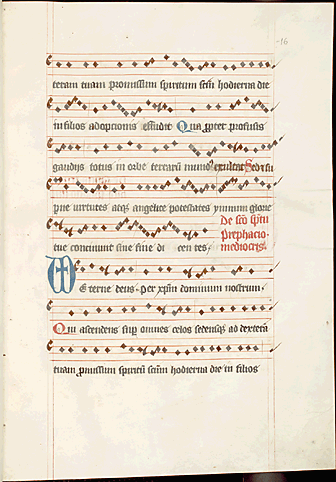 16
teram tuam promissum spiritum scm hodierna die
in filios adoptionis effudit Qua ppter profusis
gaudijs totus in orbe terrarū mund exultat Sed et su
pne virtutes atq angelice potestates ymnum glorie
tue concinunt sine fine di cen tes
De sco spu
prephacio
mediocris
eterne deus Per xpm dominum nostrum
Qui ascendens sup omnes celos sedensq ad dextera
tuam pmissum spiritū scm hodierna die in filios